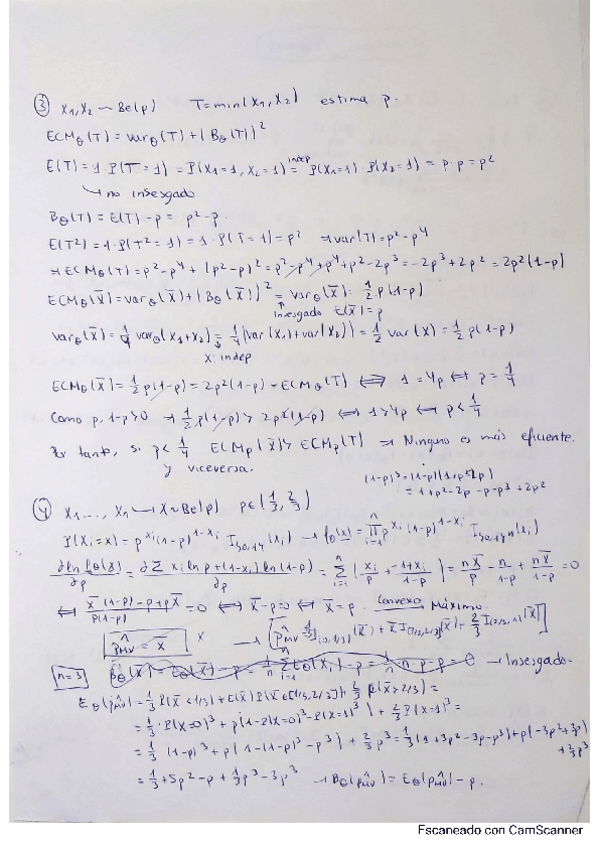 ③ X₁,X₂ ~ Be(p) T=min(X₁,X₂) estima p.
ECM_θ(T) = var_θ(T) + (B_θ(T))²
E(T) = 1·P(T=1) = P(X₁=1, X₂=1) =^{indep} P(X₁=1)·P(X₂=1) = p·p = p²
↳ no insesgado
B_θ(T) = E(T) - p = p² - p.
E(T²) = 1·P(T²=1) = 1·P(T=1) = p² ⇒ var(T) = p² - p⁴
⇒ ECM_θ(T) = p² - p⁴ + (p² - p)² = p² - p⁴ + p⁴ + p² - 2p³ = -2p³ + 2p² = 2p²(1-p)
ECM_θ(X̄) = var_θ(X̄) + (B_θ(X̄))² = var_θ(X̄) = 1/2 p(1-p)
↑ Insesgado E(X̄) = p
var_θ(X̄) = 1/4 var_θ(X₁+X₂) = 1/4 (var(X₁) + var(X₂)) = 1/2 var(X) = 1/2 p(1-p)
X indep
ECM_θ(X̄) = 1/2 p(1-p) = 2p²(1-p) = ECM_θ(T) ⟺ 1 = 4p ⟺ p = 1/4
Como p, 1-p > 0 → 1/2 p(1-p) > 2p²(1-p) ⟺ 1 > 4p ⟺ p < 1/4
Por tanto, si p < 1/4 ECM_p(X̄) > ECM_p(T) ⇒ Ninguno es más eficiente.
y viceversa.
(1-p)³ = (1-p)(1+p²-2p)
= 1+p²-2p-p-p³+2p²
④ X₁..., Xₙ → X ~ Be(p) p∈(1/3, 2/3)
P(Xᵢ=x) = p^{xᵢ}(1-p)^{1-xᵢ} I_{{0,1}}(xᵢ) → f_θ(x) = ∏_{i=1}^{n} p^{xᵢ}(1-p)^{1-xᵢ} I_{{0,1}ⁿ}(xᵢ)
∂ln f_θ(x)/∂p = ∂Σ xᵢ ln p + (1-xᵢ) ln(1-p)/∂p = Σ_{i=1}^{n} (xᵢ/p + -1+xᵢ/1-p) = nX̄/p - n/1-p + nX̄/1-p = 0
⟺ X̄(1-p) - p + pX̄/p(1-p) = 0 ⟺ X̄ - p = 0 ⟺ X̄ = p. Convexo Máximo.
p̂_MV = X̄ X → [p̂_MV = 1/3 I_{(0,1/3)}(X̄) + X̄ I_{(1/3,2/3)}(X̄) + 2/3 I_{(2/3,1)}(X̄)]
n=3 B_θ(X̄) = E_θ(X̄) - p = 1/n Σ_{i=1}^{n} E_θ(Xᵢ) - p = 1/n · n·p - p = 0 → Insesgado.
E_θ(p̂_MV) = 1/3 P(X̄ < 1/3) + E(X̄) P(X̄ ∈ [1/3, 2/3]) + 2/3 P(X̄ > 2/3) =
= 1/3 · P(X=0)³ + p(1 - P(X=0)³ - P(X=1)³) + 2/3 P(X=1)³ =
= 1/3 (1-p)³ + p(1 - (1-p)³ - p³) + 2/3 p³ = 1/3 (1+3p²-3p-p³) + p(-3p²+3p) + 2/3 p³
= 1/3 + 5p² - p + 1/3 p³ - 3p³ → B_θ(p̂_MV) = E_θ(p̂_MV) - p.
Escaneado con CamScanner